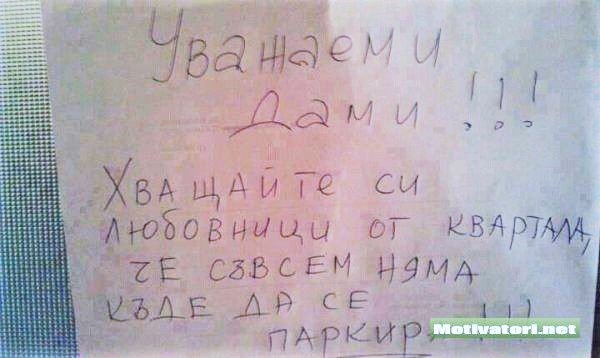 Уважаеми
Дами !!!
ХВАЩАЙТЕ СИ
ЛЮБОВНИЦИ ОТ КВАРТАЛА,
ЧЕ СЪВСЕМ НЯМА
КЪДЕ ДА СЕ
ПАРКИРА !!!
Motivatori.net